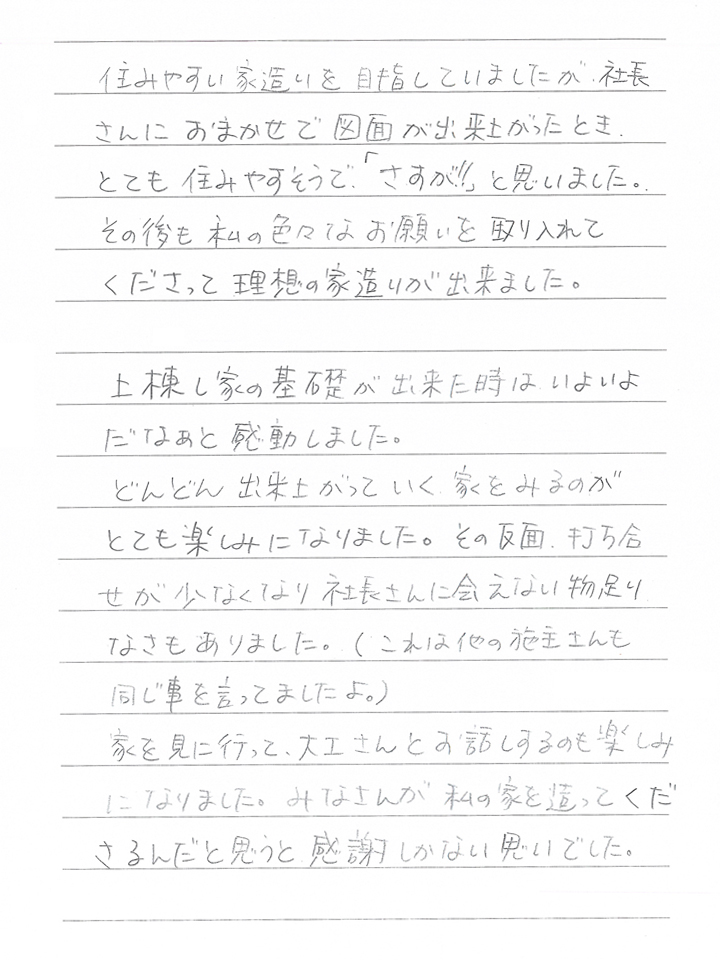 住みやすい家造りを目指していましたが、社長
さんにおまかせで図面が出来上がったとき、
とても住みやすそうで、「さすが!!」と思いました。
その後も私の色々なお願いを取り入れて
くださって理想の家造りが出来ました。
上棟し家の基礎が出来た時は、いよいよ
だなぁと感動しました。
どんどん出来上がっていく家をみるのが
とても楽しみになりました。その反面、打ち合
せが少なくなり社長さんに会えない物足り
なさもありました。(これは他の施主さんも
同じ事を言ってましたよ。)
家を見に行って、大工さんとお話しするのも楽しみ
になりました。みなさんが私の家を造ってくだ
さるんだと思うと感謝しかない思いでした。